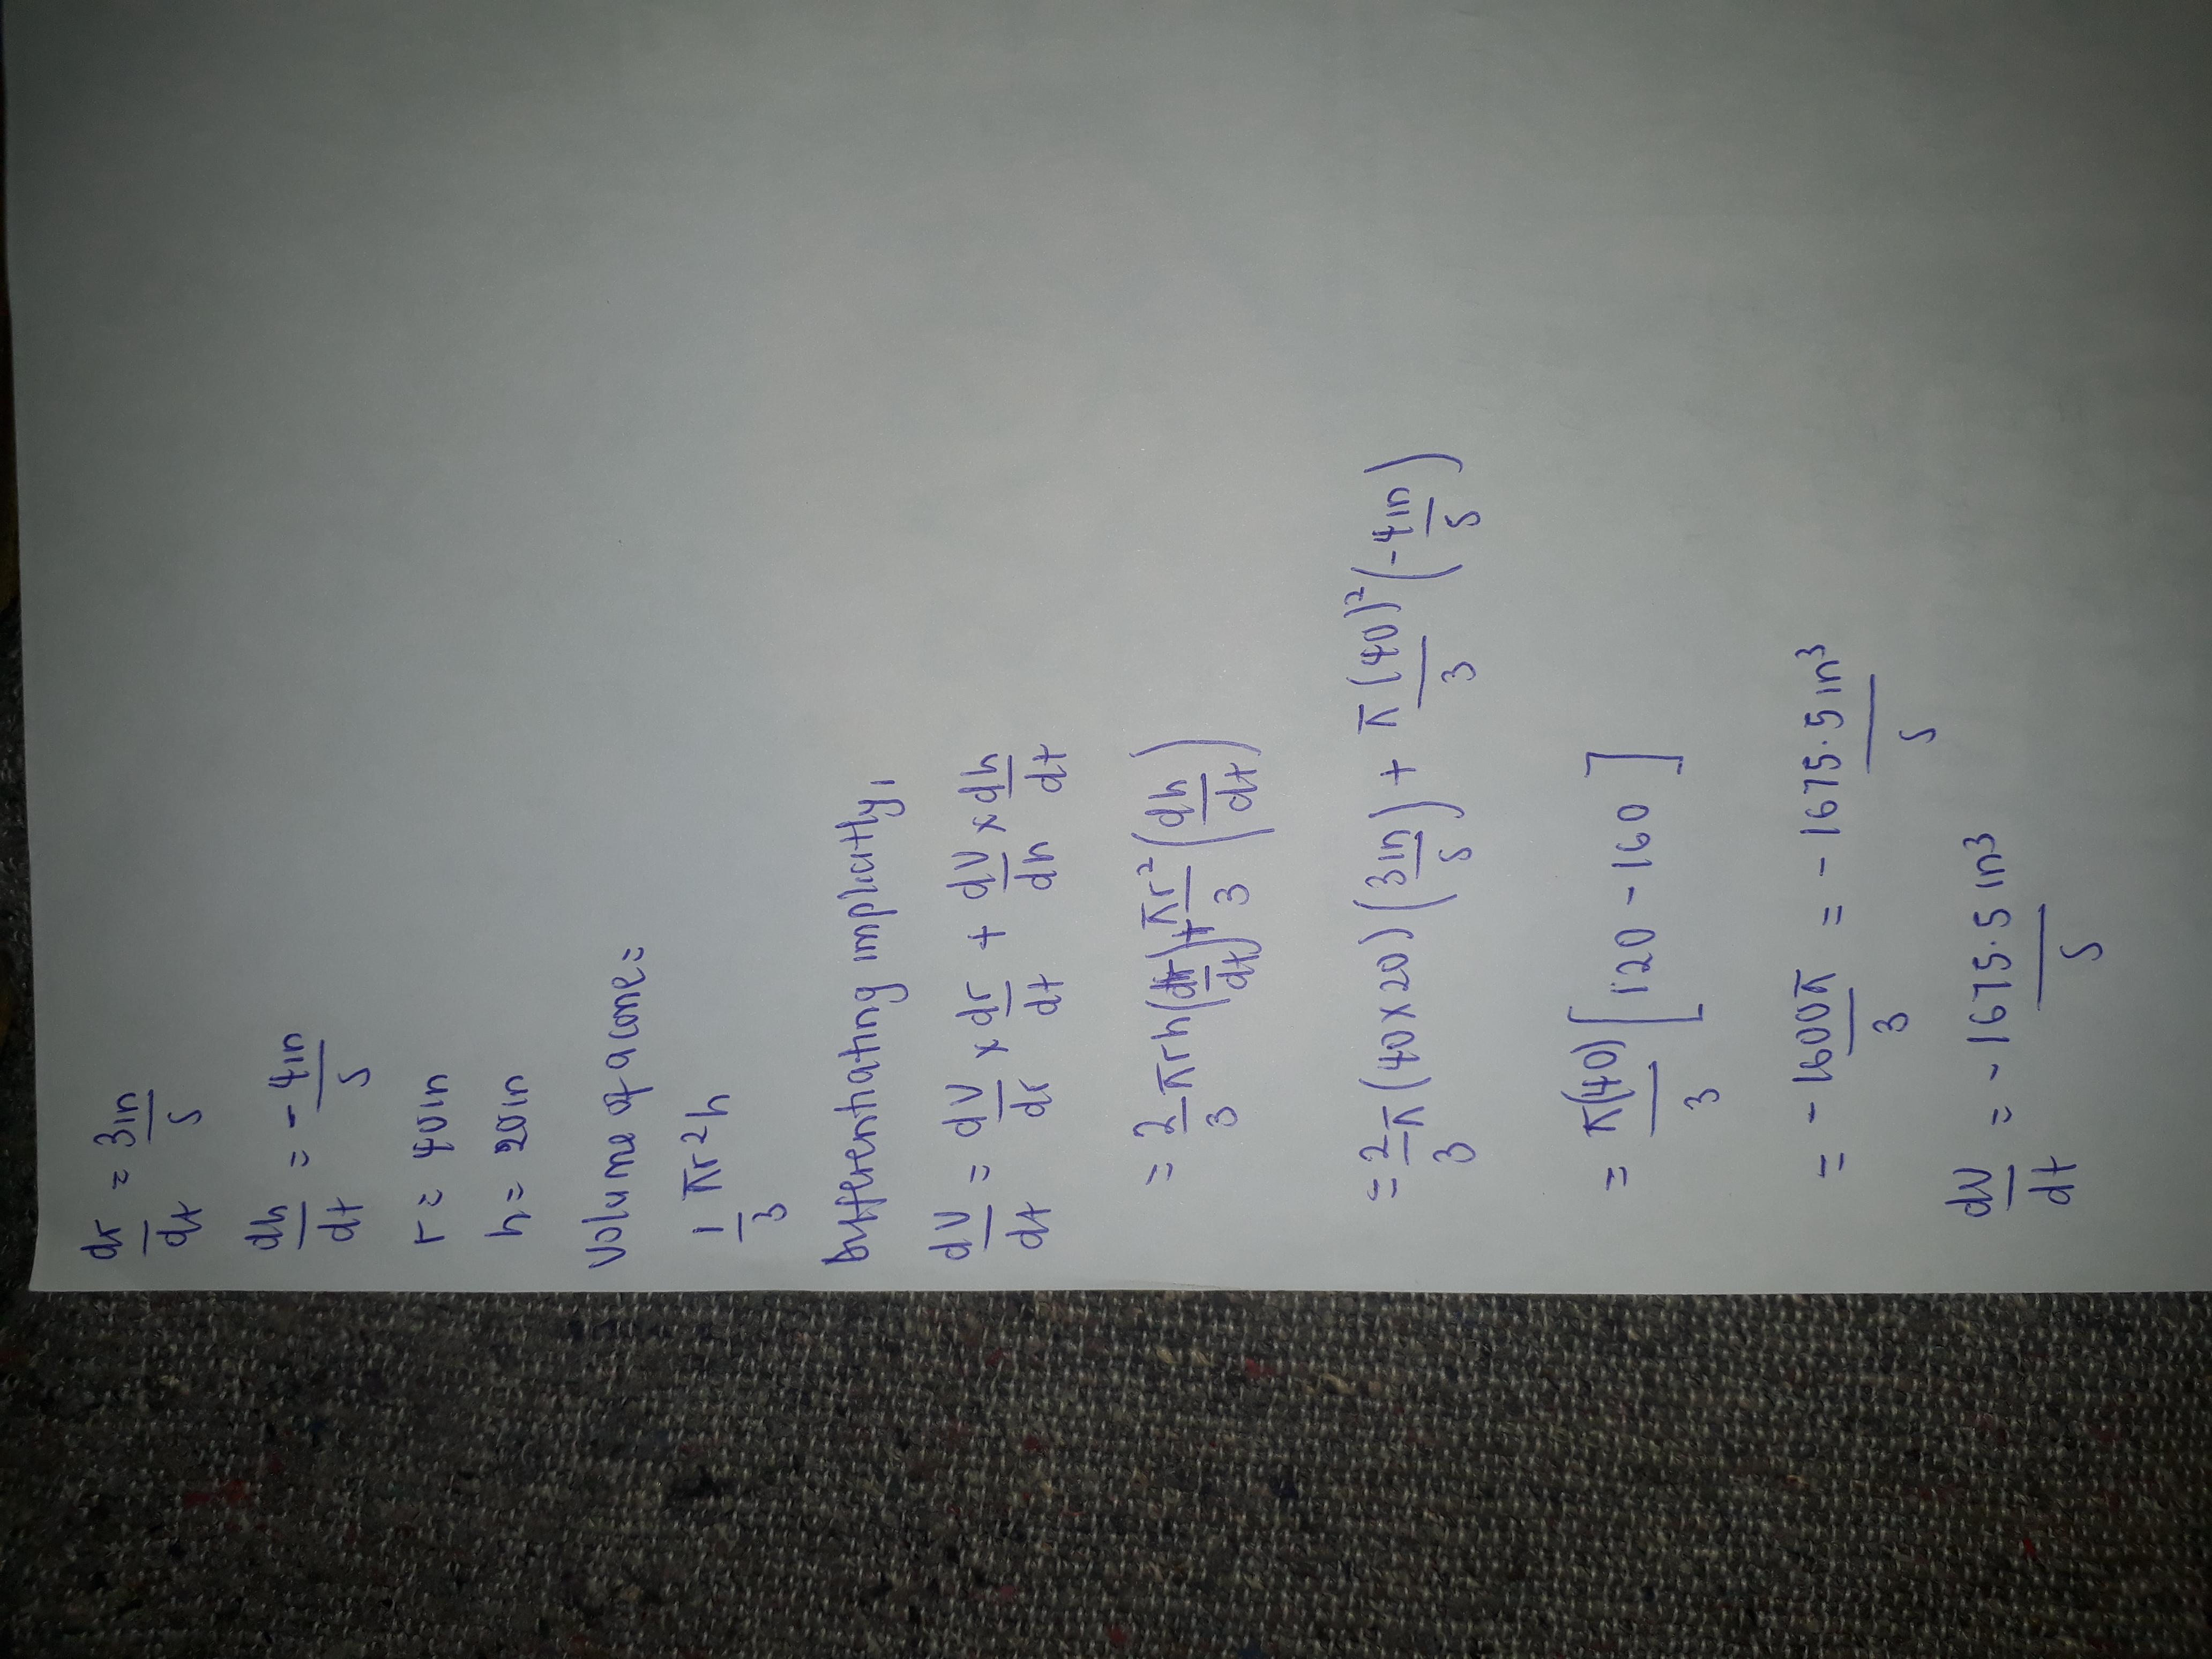 dr/dt = 3in/s
dh/dt = -4in/s
r = 40in
h = 20in
Volume of a cone =
1/3 πr²h
Differentiating implicitly,
dV/dt = dV/dr × dr/dt + dV/dh × dh/dt
= 2/3 πrh(dr/dt) + πr²/3 (dh/dt)
= 2/3 π(40×20)(3in/s) + π(40)²/3 (-4in/s)
= π(40)/3 [120 - 160]
= -1600π/3 = -1675.5 in³/s
dV/dt = -1675.5 in³/s